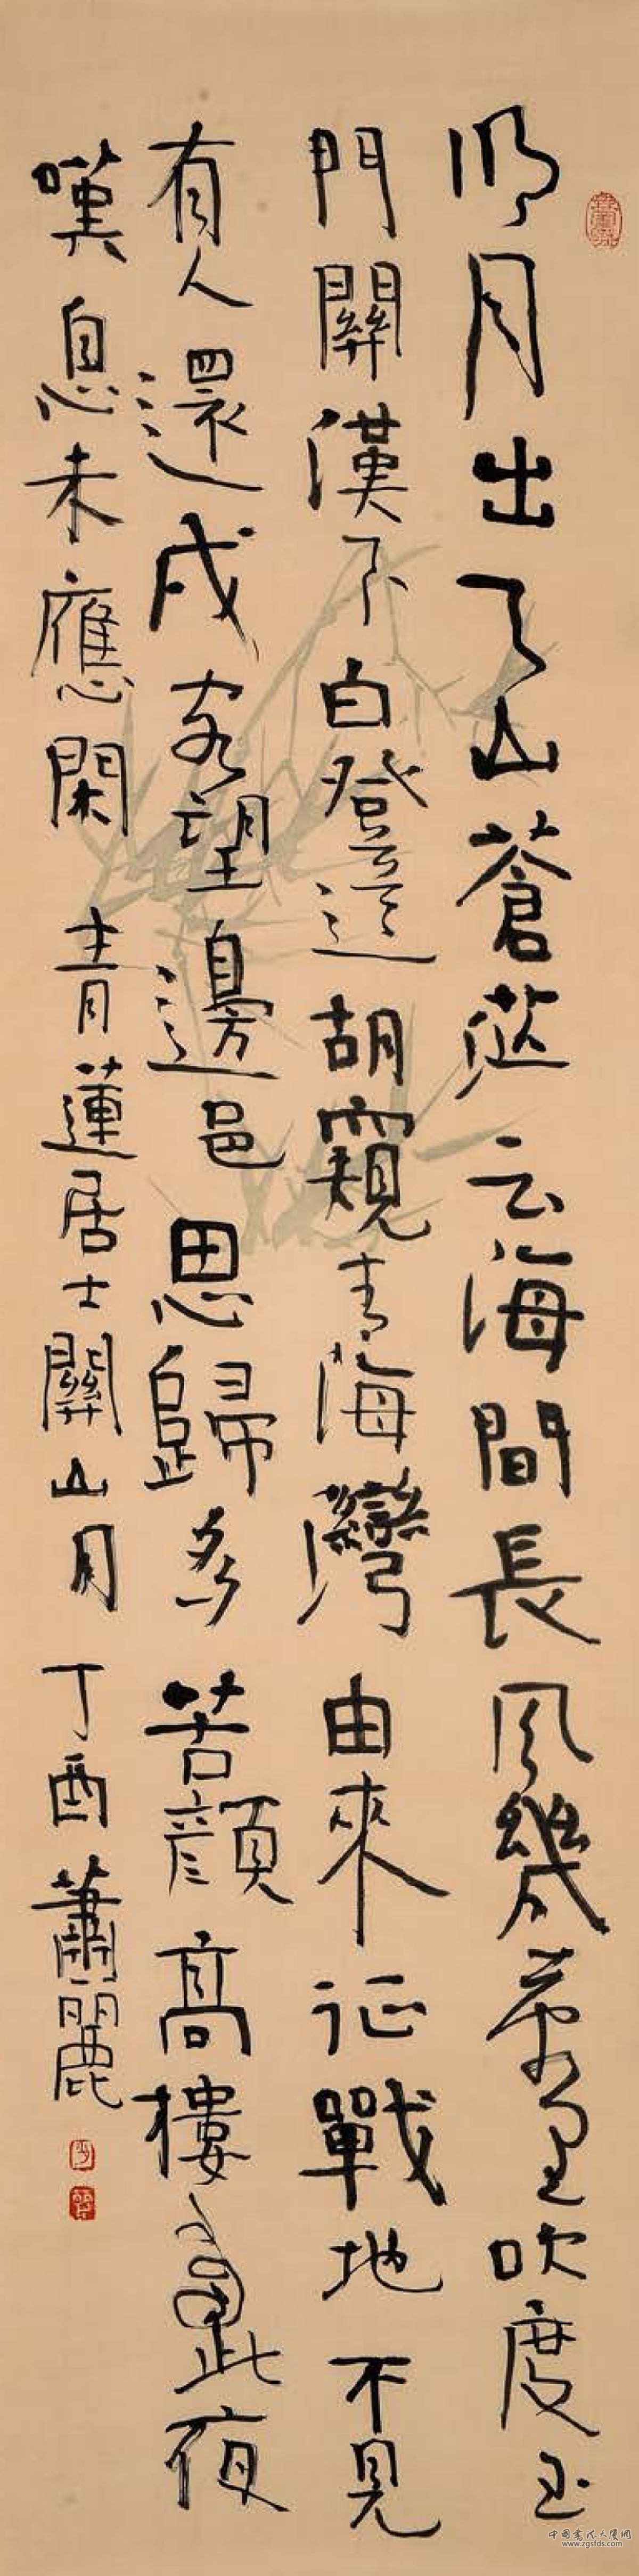 明月出天山蒼茫云海間長風幾萬里吹度玉
門關漢下白登道胡窺青海灣由來征戰地不見
有人還戍客望邊邑思歸多苦顏高樓當此夜
嘆息未應閑 青蓮居士關山月 丁酉蕭麗
www.zgsfds.com